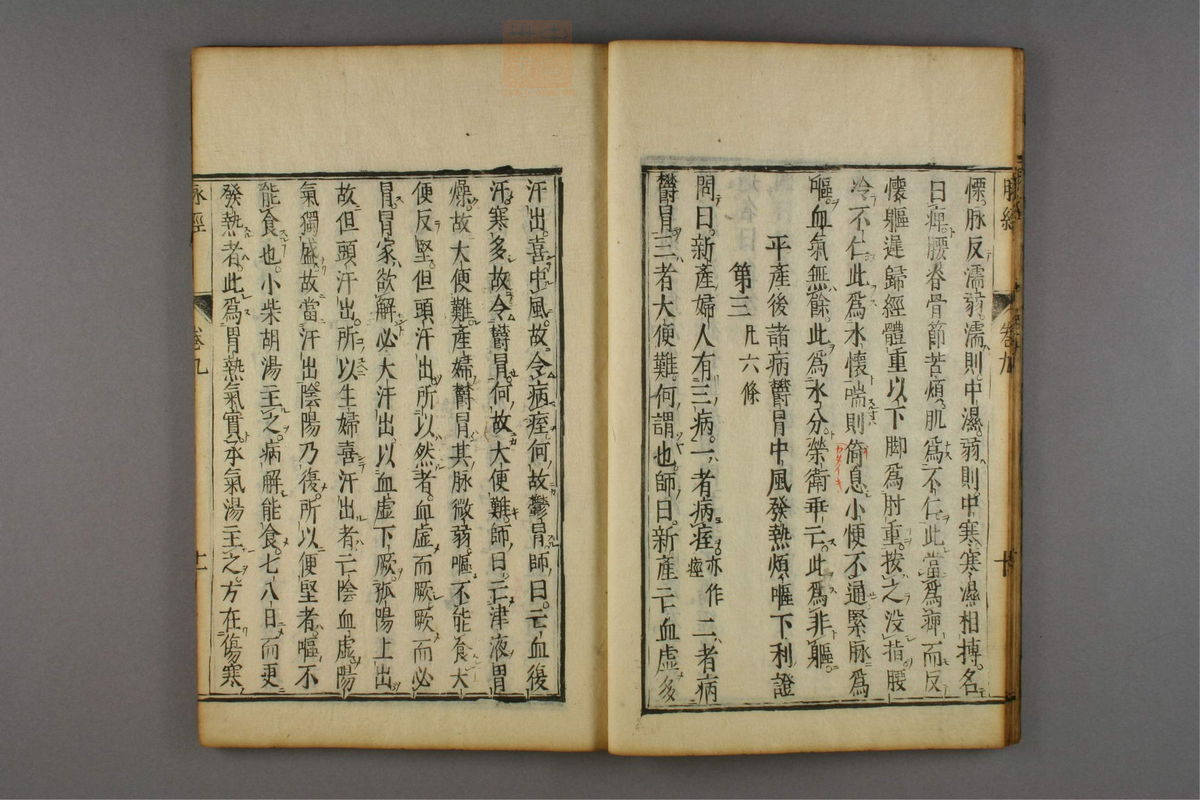 脉經 卷九 十
慄脉反濡弱濡則中濕弱則中寒寒濕相搏名
曰痺腰脊骨節苦煩肌爲不仁此當爲痺而反
懷軀遲歸經體重以下脚爲胕重按之没指腰
冷不仁此爲水懷喘則倚息小便不通緊脉爲
嘔血氣無餘此爲水分榮衛乖亡此爲非軀
平產後諸病鬱冒中風發熱煩嘔下利證
第三 凡六條
問曰新產婦人有三病一者病痙亦作痓二者病
鬱冒三者大便難何謂也師曰新產亡血虛多
汗出喜中風故令病痙何故鬱冒師曰亡血復
汗寒多故令鬱冒何故大便難師曰亡津液胃
燥故大便難產婦鬱冒其脉微弱嘔不能食大
便反堅但頭汗出所以然者血虛而厥厥而必
冒冒家欲解必大汗出以血虛下厥孤陽上出
故但頭汗出所以生婦喜汗出者亡陰血虛陽
氣獨盛故當汗出陰陽乃復所以便堅者嘔不
能食也小柴胡湯主之病解能食七八日而更
發熱者此爲胃熱氣實承氣湯主之方在傷寒
脉經 卷九 十一